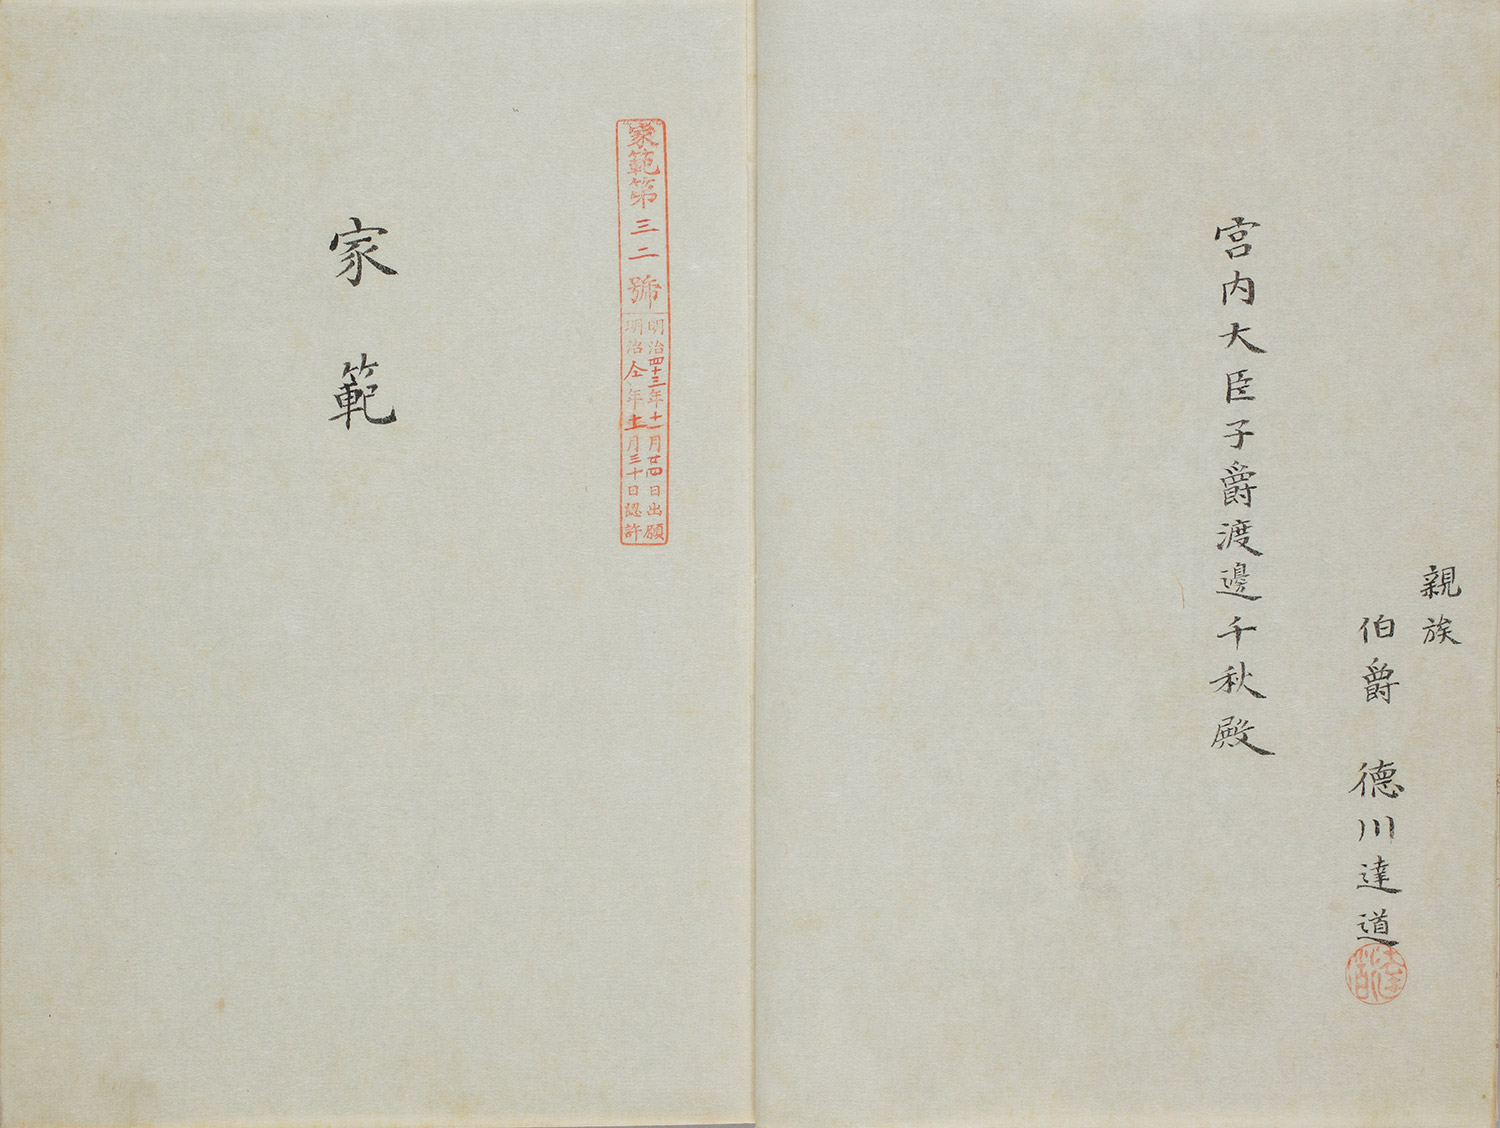 親族
伯爵 德川達道
達道
宮内大臣子爵渡邊千秋殿
家範第三二號
明治四十三年十一月廿四日出願
明治仝年十二月三十日認許
家範